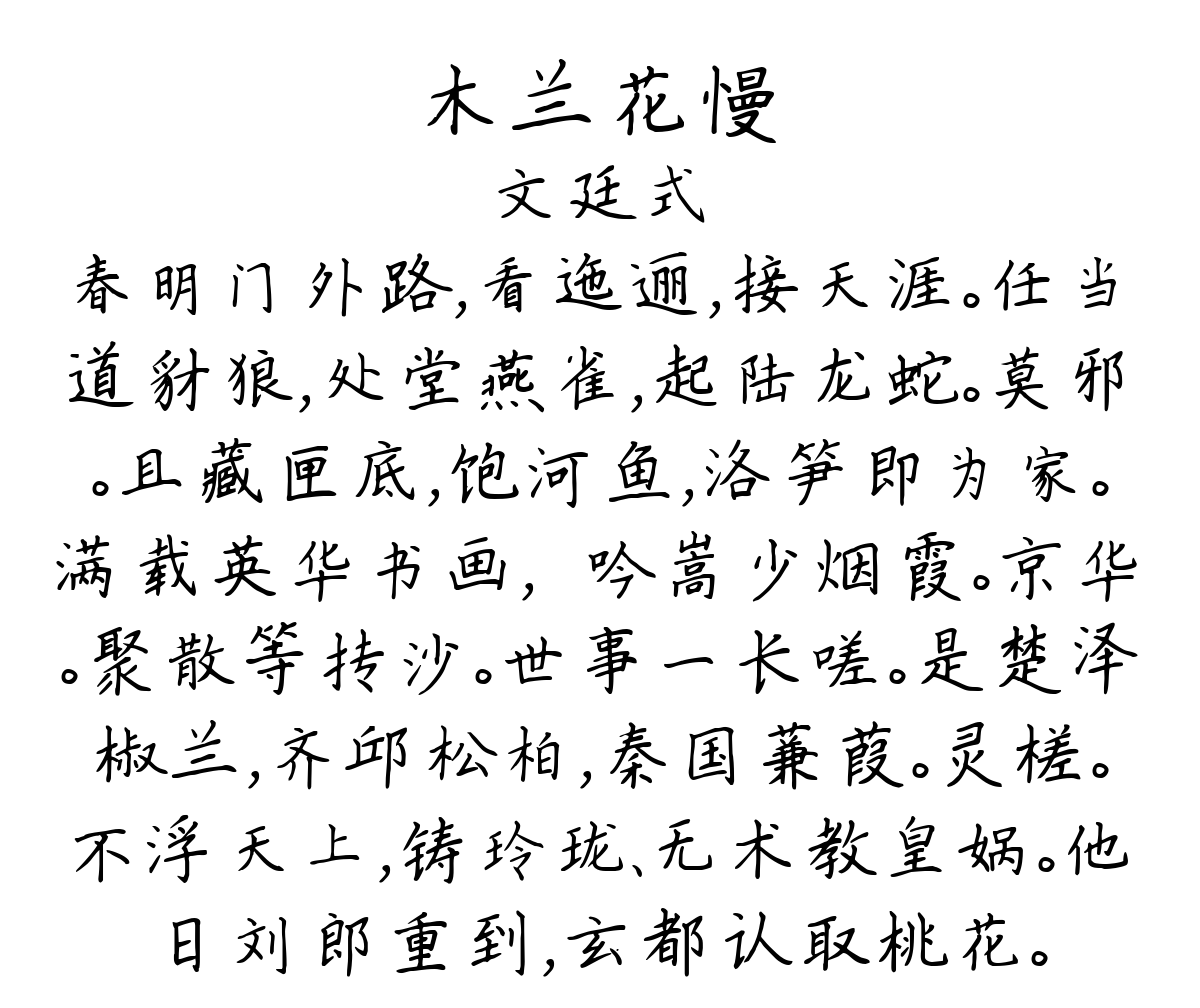 木兰花慢
文廷式
春明门外路,看迤逦,接天涯。任当
道豺狼,处堂燕雀,起陆龙蛇。莫邪
。且藏匣底,饱河鱼,洛笋即为家。
满载英华书画, 吟嵩少烟霞。京华
。聚散等抟沙。世事一长嗟。是楚泽
椒兰,齐邱松柏,秦国蒹葭。灵槎。
不浮天上,铸玲珑、无术教皇娲。他
日刘郎重到,玄都认取桃花。